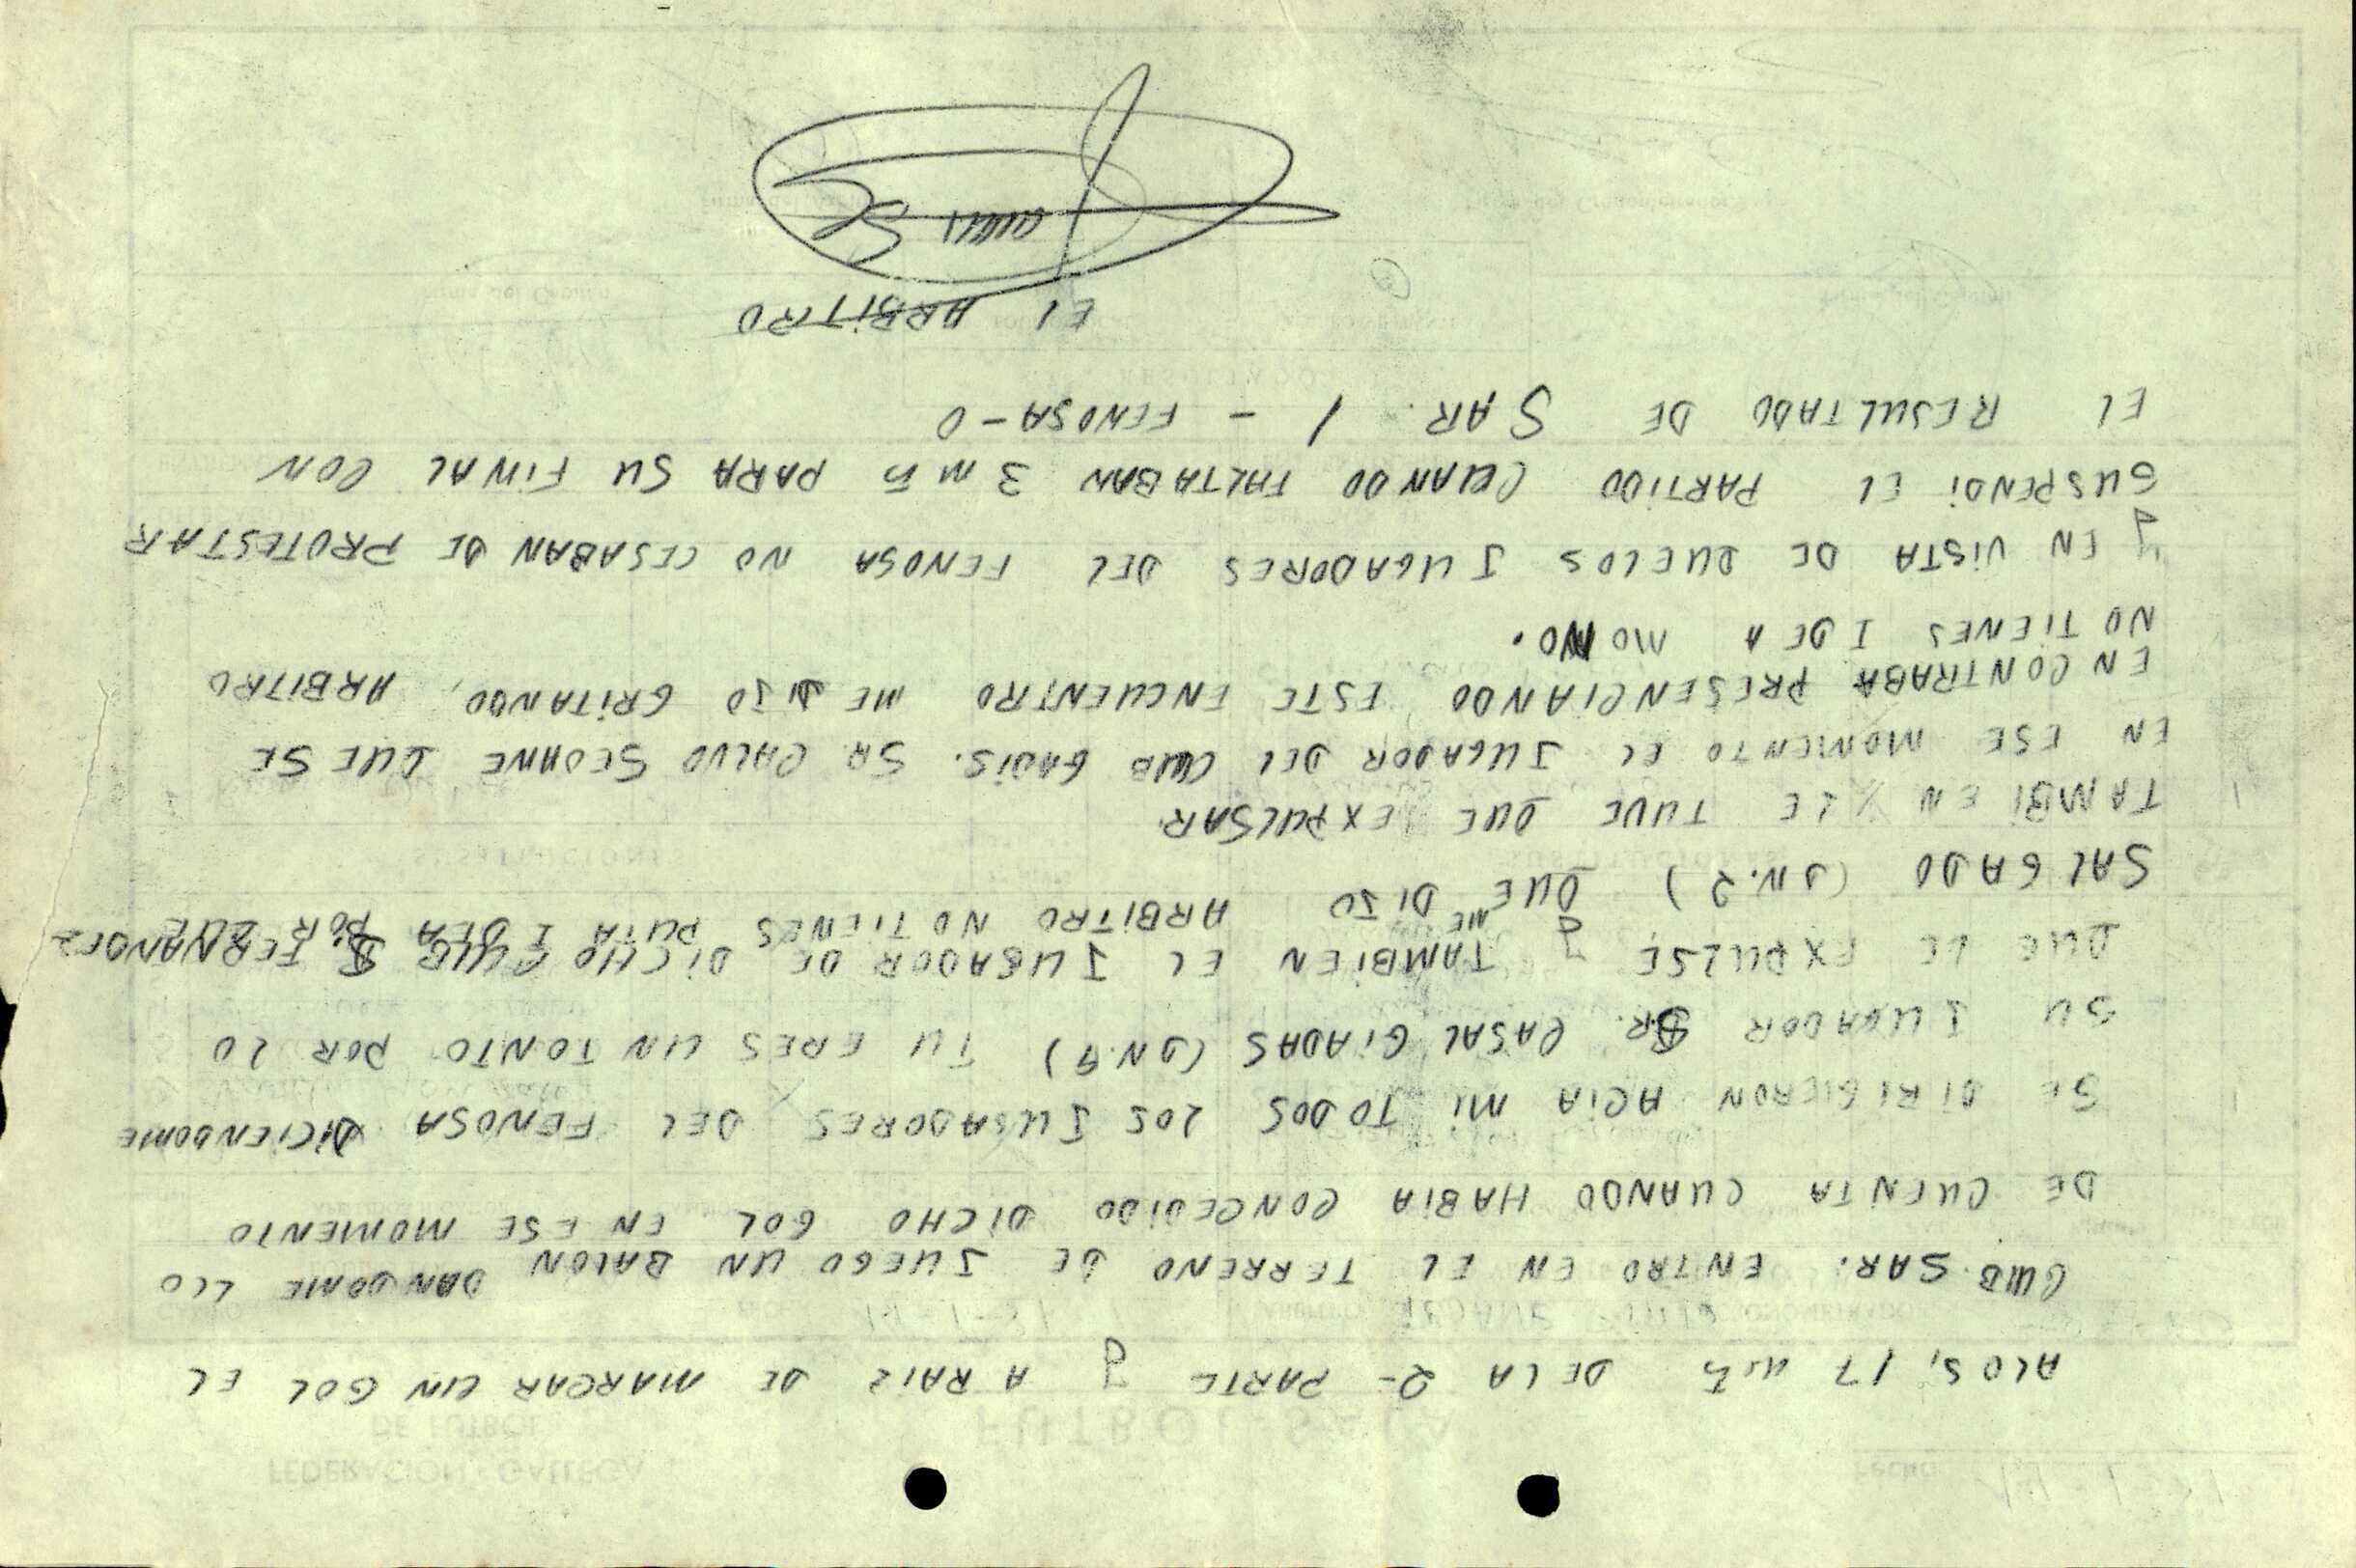 ALOS, 17 DE LA 2- PARTE Y A RAIZ DE MARCAR UN GOL EL
CLUB. SAR. ENTRO EN EL TERRENO DE JUEGO UN BALON DANDOME LLO
DE CUENTA CUANDO HABIA CONCEDIDO DICHO GOL EN ESE MOMENTO
SE DIRIGIERON ACIA MI TODOS LOS JUGADORES DEL FENOSA DICIENDOME
SU JUGADOR SR. CASAL GIADAS (DN.9) TU ERES UN TONTO POR LO
QUE LE EXPULSE Y TAMBIEN EL JUGADOR DE DICHO CLUB FERNANDEZ
SALGADO (DN.2) QUE ME DIJO ARBITRO NO TIENES PUTA IDEA POR QUE
TAMBIEN LE TUVE QUE EXPULSAR
EN ESE MOMENTO EL JUGADOR DEL CLUB GADIS. SR CALVO SEOANE QUE SE
ENCONTRABA PRESENCIANDO ESTE ENCUENTRO ME DIJO GRITANDO, ARBITRO
NO TIENES IDEA MONO.
Y EN VISTA DE QUELOS JUGADORES DEL FENOSA NO CESABAN DE PROTESTAR
SUSPENDI EL PARTIDO CUANDO FALTABAN 3 PARA SU FINAL CON
EL RESULTADO DE SAR. 1 - FENOSA-0
EL ARBITRO